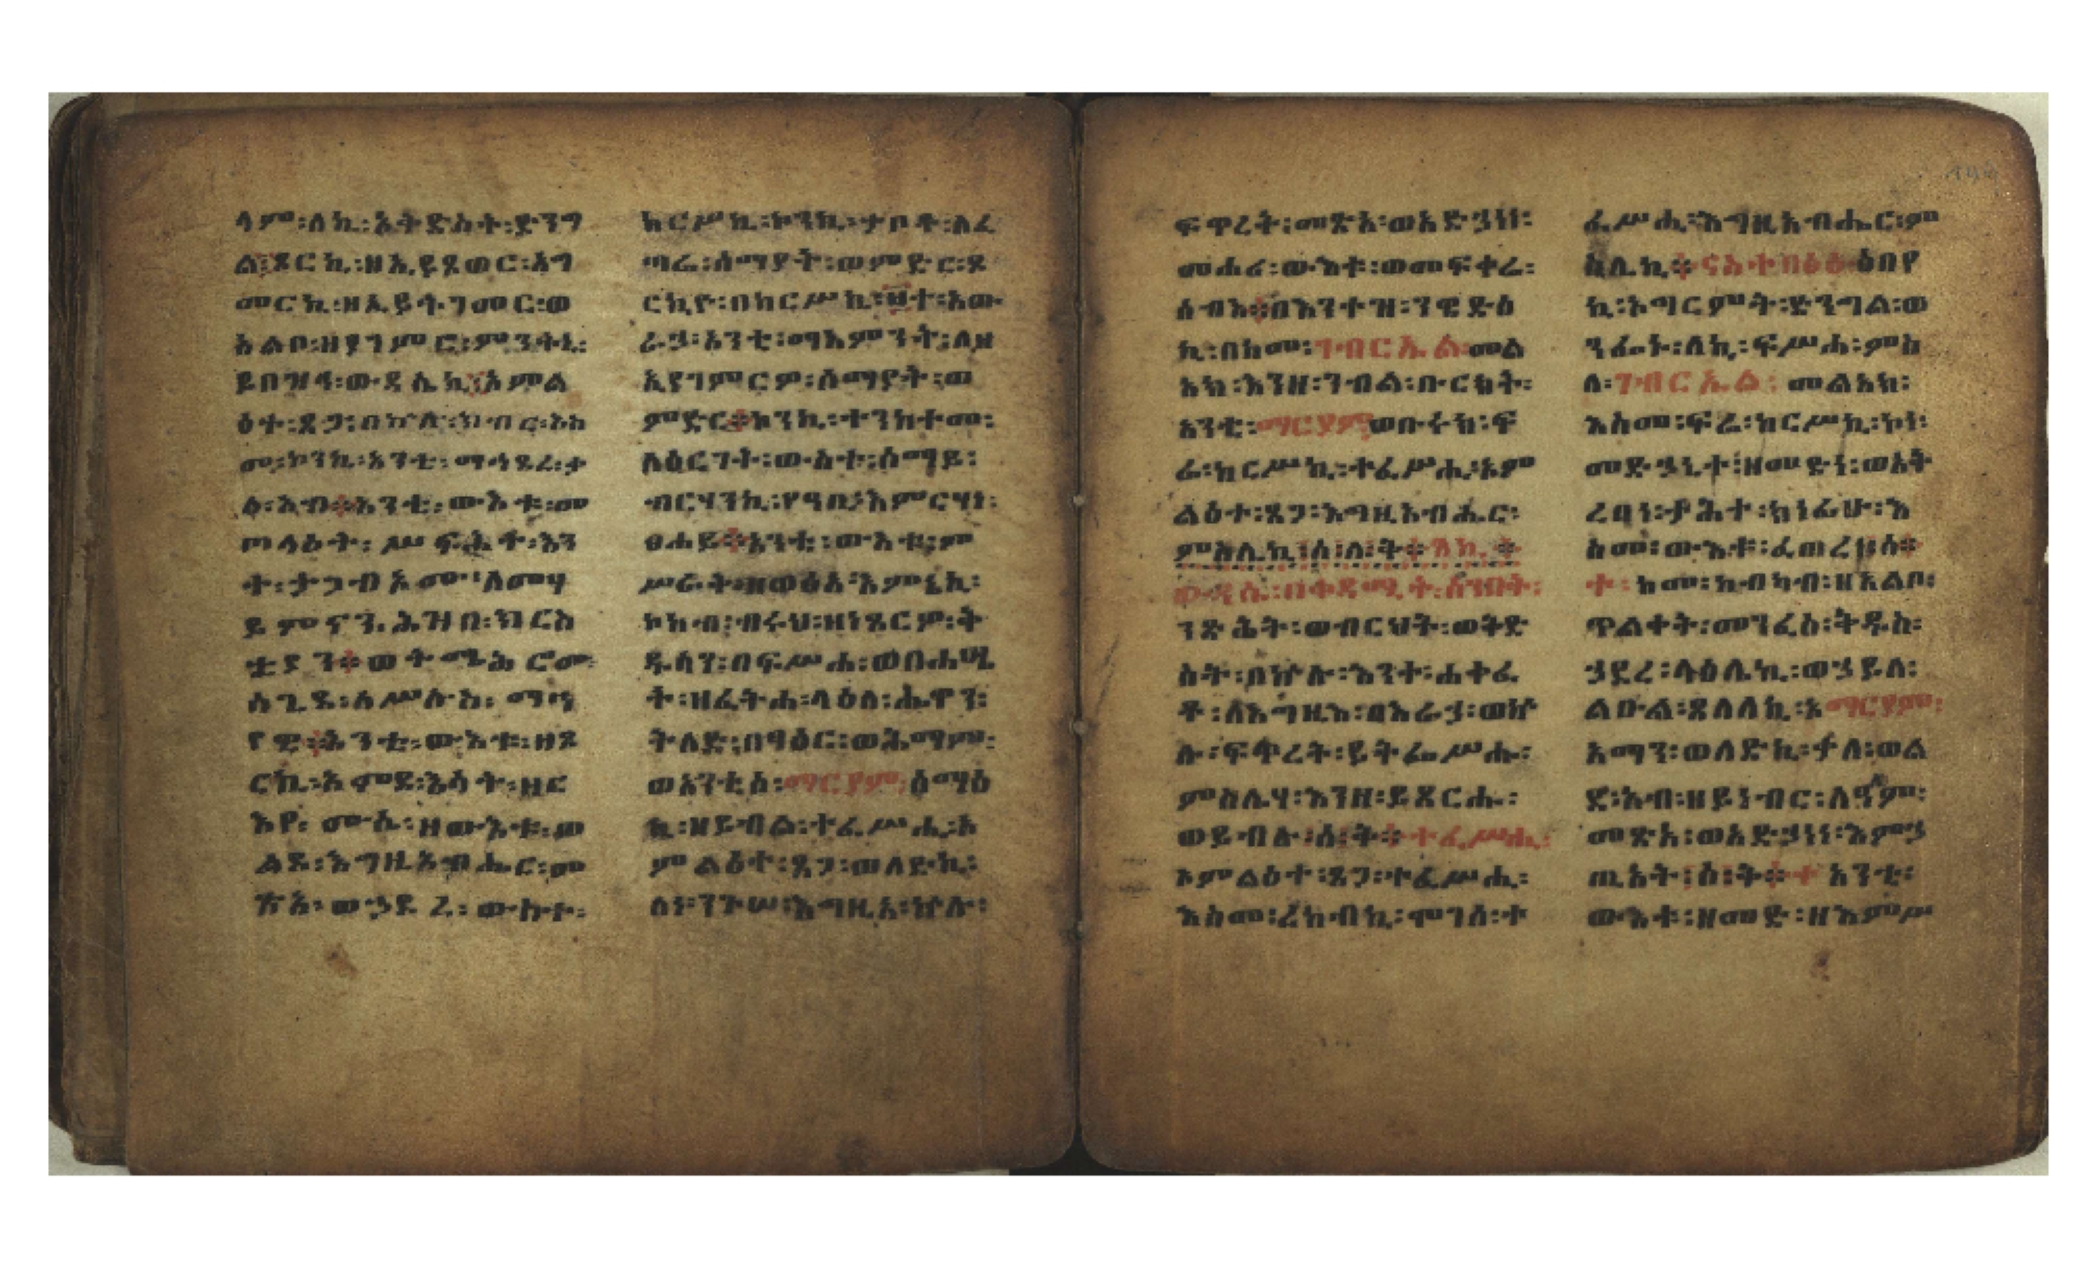 ላም፡ለኪ፡እትድስተ፡ድንግ
ል፡ጾርኪ፡ዘኢይጸወር፡አግ
መርኪ፡ዘኢይትገመር፡ወ
አልቦ፡ዘያገምሮ፡ምንትኒ፡
ይበዝኅ፡ውዳሴኪ፡እምል
ዕተ፡ጸጋ፡በኵሉ፡ክብር፡እስ
መ፡ኮንኪ፡አንቲ፡ማኅደረ፡ቃ
ለ፡አብ፡አንቲ፡ውእቱ፡መ
ጦላዕት፡ሥፍሕት፡እን
ተ፡ታጋብኦሙ፡ለመሃ
ይምናን፡ሕዝበ፡ክርስ
ቲያን፡ወትሜሕሮሙ
ስጊደ፡ለሥሉስ፡ማኅ
የዊ፡አንቲ፡ውእቱ፡ዘጾ
ርኪ፡አምደ፡እሳት፡ዘር
እየ፡ሙሴ፡ዘውእቱ፡ወ
ልደ፡እግዚአብሔር፡መ
ጽአ፡ወኃደረ፡ውስተ፡
ከርሥኪ፡ኮንኪ፡ታቦተ፡ለፈ
ጣሬ፡ሰማያት፡ወምድር፡ጾ
ርኪዮ፡በከርሥኪ፡፱ተ፡አው
ራኃ፡አንቲ፡ማእምንት፡ለዘ
ኢያገምርዎ፡ሰማያት፡ወ
ምድር፡አንኪ፡ተንከተመ፡
ለዕርገት፡ውስተ፡ሰማይ፡
ብርሃንኪ፡የዓቢ፡እምርሃነ፡
ፀሐይ፡አንቲ፡ውእቱ፡ም
ሥራት፡ዘወፅአ፡እምኔኪ፡
ኮከብ፡ብሩህ፡ዘነጸርዎ፡ቅ
ዱሳን፡በፍሥሐ፡ወበሐሤ
ት፡ዘፈትሐ፡ላዕለ፡ሔዋን፡
ትለድ፡በፃዕር፡ወሕማም፡
ወአንቲሰ፡ማርያም፡ሰማዕ
ኪ፡ዘይብል፡ተፈሥሒ፡ኦ
ምልዕተ፡ጸጋ፡ወለድኪ፡
ለነ፡ንጉሠ፡እግዚአ፡ኵሉ፡
ፍጥረት፡መጽአ፡ወአድኃነነ፡
መሐሪ፡ውእቱ፡ወመፍቀሬ፡
ሰብእ፡በእንተዝ፡ንዌድሰ
ኪ፡በከመ፡ገብርኤል፡መል
አክ፡እንዘ፡ንብል፡ቡርክት፡
አንቲ፡ማርያም፡ወቡሩክ፡ፍ
ሬ፡ከርሥኪ፡ተፈሥሒ፡ኦም
ልዕተ፡ጸጋ፡እግዚአብሔር፡
ምስሌኪ፡ሰ፡ለ፡ት፡
ውዳሴ፡በቀዳሚት፡ሰንበት፡
ንጽሕት፡ወብርህት፡ወቅድ
ስት፡በኵሉ፡እንተ፡ሐቀፈ
ቶ፡ለእግዚእ፡በእራኃ፡ወኵ
ሉ፡ፍጥረት፡ይትፌሥሑ፡
ምስሌሃ፡እንዘ፡ይጸርሑ፡
ወይብሉ፡ሰ፡ት፡ተፈሥሒ፡
ኦምልዕተ፡ጸጋ፡ተፈሥሒ፡
እስመ፡ረከብኪ፡ሞገሰ፡ተ
ፈሥሒ፡እግዚአብሔር፡ም
ስሌኪ፡ናስተበፅዕ፡ዕበየ
ኪ፡ኦግርምት፡ድንግል፡ወ
ንፌኑ፡ለኪ፡ፍሥሐ፡ምስ
ለ፡ገብርኤል፡መልአክ፡
እስመ፡ፍሬ፡ከርሥኪ፡ኮነ፡
መድኃኒተ፡ዘመድነ፡ወአቅ
ረበነ፡ኃሕተ፡ከነፊሁ፡እ
ስመ፡ውእቱ፡ፈጠረነ፡ሰ
ተ፡ከመ፡ከብካብ፡ዘአልቦ፡
ጥልቀት፡መንፈስ፡ቅዱስ፡
ኃደረ፡ላዕሌኪ፡ወኃይለ፡
ልዑል፡ጸለለኪ፡ኦማርያም፡
አማን፡ወለድኪ፡ቃለ፡ወል
ደ፡አብ፡ዘይነብር፡ለዓለም፡
መጽአ፡ወአድኃነነ፡እምኃ
ጢአት፡ሰ፡ት፡አንቲ፡
ውእቱ፡ዘመድ፡ዘእምሥ